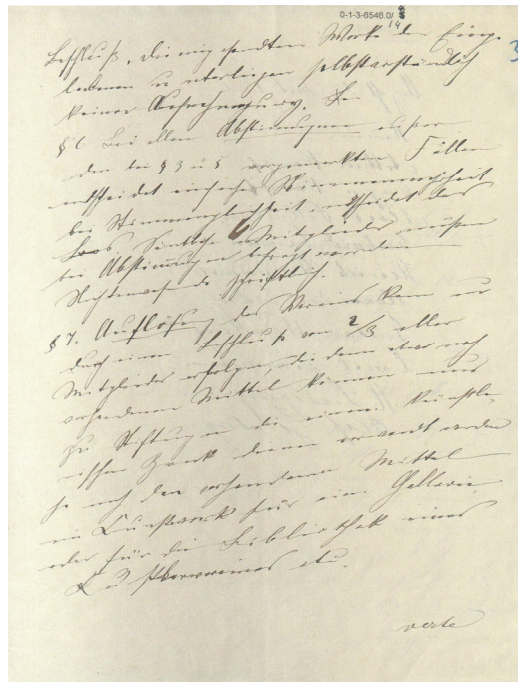 0-1-3-6546.0/8
14
Beschluß, die eingesandten Werke der Einge-
ladenen unterliegen selbstverständlich
keiner
§ 6 Bei allen Abstimmungen außer
den bei § 3 u 5 vorgemerkten Fällen
entscheidet einfache Stimmenmehrheit
bei Stimmengleichheit entscheidet das
Loos Sämtliche Mitglieder müssen
bei Abstimmungen befragt werden
Nichtanwesende schriftlich.
§ 7. Auflösung des Vereins kann nur
durch einen Beschluß von 2/3 aller
Mitglieder erfolgen, die dann etwa noch
vorhandenen Mittel können nur
zu Stiftungen die einem künstle-
rischen Zweck dienen verwandt werden
je nach den vorhandenen Mitteln
ein Kunstwerk für eine Gallerie,
oder für die Bibliothek eines
etc.
verte